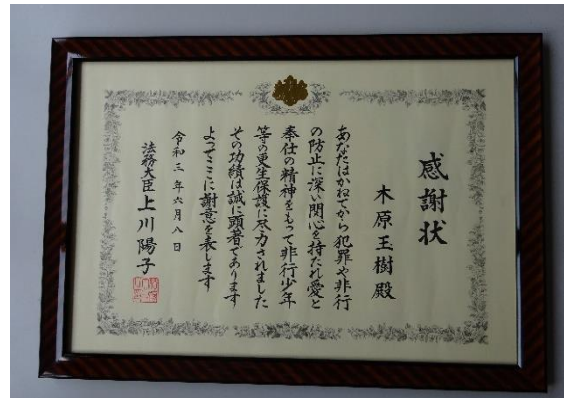 感謝状
木原王樹殿
あなたはかねてから犯罪や非行
の防止に深い関心を持たれ愛と
奉仕の精神をもって非行少年
等の更生保護に尽力されました
その功績は誠に顕著であります
よってここに謝意を表します
令和三年六月八日
法務大臣 上川陽子